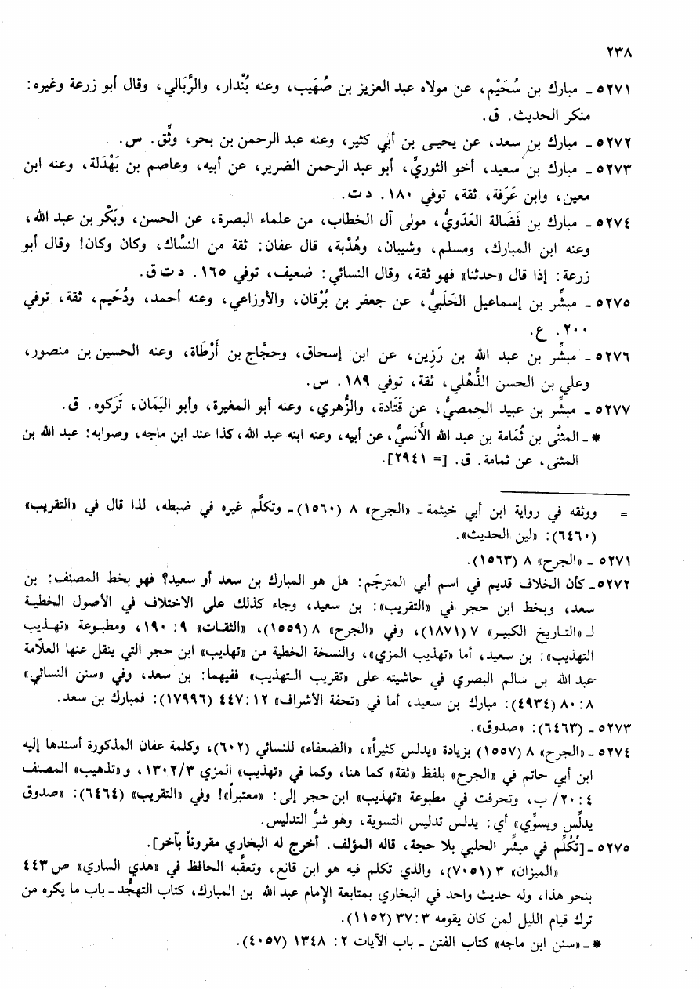 ٢٣٨
٥٢٧١ ـ مبارك بن سُحَيْم، عن مولاه عبد العزيز بن صُهَيب، وعنه بُنْدار، والرَّبَالي، وقال أبو زرعة وغيره:
منكر الحديث. ق.
٥٢٧٢ ـ مبارك بن سعد، عن يحيى بن أبي كثير، وعنه عبد الرحمن بن بحر، وثِّق. س.
٥٢٧٣ ـ مبارك بن سعيد، أخو الثوريِّ، أبو عبد الرحمن الضرير، عن أبيه، وعاصم بن بَهْدَلة، وعنه ابن
معين، وابن عَرَفة، ثقة، توفي ١٨٠. د ت.
٥٢٧٤ ـ مبارك بن فَضَالة العَدَويُّ، مولى آل الخطاب، من علماء البصرة، عن الحسن، وبَكْر بن عبد الله،
وعنه ابن المبارك، ومسلم، وشيبان، وهُدْبة، قال عفان: ثقة من النسَّاك، وكان وكان! وقال أبو
زرعة: إذا قال «حدثنا» فهو ثقة، وقال النسائي: ضعيف، توفي ١٦٥. د ت ق.
٥٢٧٥ ـ مبشِّر بن إسماعيل الحَلَبيُّ، عن جعفر بن بُرْقان، والأوزاعي، وعنه أحمد، ودُحَيم، ثقة، توفي
٢٠٠. ع.
٥٢٧٦ ـ مبشِّر بن عبد الله بن رَزِين، عن ابن إسحاق، وحجَّاج بن أَرْطاة، وعنه الحسين بن منصور،
وعلي بن الحسن الذُّهْلي، ثقة، توفي ١٨٩. س.
٥٢٧٧ ـ مبشِّر بن عبيد الحِمصيُّ، عن قَتَادة، والزُّهري، وعنه أبو المغيرة، وأبو اليَمَان، تَركوه. ق.
* ـ المثنَّى بن ثُمَامة بن عبد الله الأَنَسيُّ، عن أبيه، وعنه ابنه عبد الله، كذا عند ابن ماجه، وصوابه: عبد الله بن
المثنى، عن ثمامة. ق. [= ٢٩٤١].
= ووثقه في رواية ابن أبي خيثمة ـ «الجرح» ٨ (١٥٦٠) ـ وتكلَّم غيره في ضبطه، لذا قال في «التقريب»
(٦٤٦٠): «لين الحديث».
٥٢٧١ ـ «الجرح» ٨ (١٥٦٣).
٥٢٧٢ ـ كأن الخلاف قديم في اسم أبي المترجَم: هل هو المبارك بن سعد أو سعيد؟ فهو بخط المصنف: بن
سعد، وبخط ابن حجر في «التقريب»: بن سعيد، وجاء كذلك على الاختلاف في الأصول الخطية
لـ «التاريخ الكبير» ٧ (١٨٧١)، وفي «الجرح» ٨ (١٥٥٩)، «الثقات» ٩: ١٩٠، ومطبوعة «تهذيب
التهذيب»: بن سعيد، أما «تهذيب المزي»، والنسخة الخطية من «تهذيب» ابن حجر التي ينقل عنها العلّامة
عبد الله بن سالم البصري في حاشيته على «تقريب التهذيب» ففيهما: بن سعد، وفي «سنن النسائي»
٨: ٨٠ (٤٩٣٤): مبارك بن سعيد، أما في «تحفة الأشراف» ١٢: ٤٤٧ (١٧٩٩٦): فمبارك بن سعد.
٥٢٧٣ ـ (٦٤٦٣): «صدوق».
٥٢٧٤ ـ «الجرح» ٨ (١٥٥٧) بزيادة «يدلس كثيراً»، «الضعفاء» للنسائي (٦٠٢)، وكلمة عفان المذكورة أسندها إليه
ابن أبي حاتم في «الجرح» بلفظ «ثقة» كما هنا، وكما في «تهذيب» المزي ١٣٠٢/٣، و«تذهيب» المصنف
٤: ٢٠/ب، وتحرفت في مطبوعة «تهذيب» ابن حجر إلى: «معتبراً»! وفي «التقريب» (٦٤٦٤): «صدوق
يدلِّس ويسوِّي» أي: يدلس تدليس التسوية، وهو شرُّ التدليس.
٥٢٧٥ ـ [تُكُلِّم في مبشِّر الحلبي بلا حجة، قاله المؤلف. أخرج له البخاري مقروناً بآخر].
«الميزان» ٣ (٧٠٥١)، والذي تكلم فيه هو ابن قانع، وتعقَّبه الحافظ في «هدي الساري» ص ٤٤٣
بنحو هذا، وله حديث واحد في البخاري بمتابعة الإمام عبد الله بن المبارك، كتاب التهجُّد ـ باب ما يكره من
ترك قيام الليل لمن كان يقومه ٣: ٣٧ (١١٥٢).
* ـ «سنن ابن ماجه» كتاب الفتن ـ باب الآيات ٢: ١٣٤٨ (٤٠٥٧).